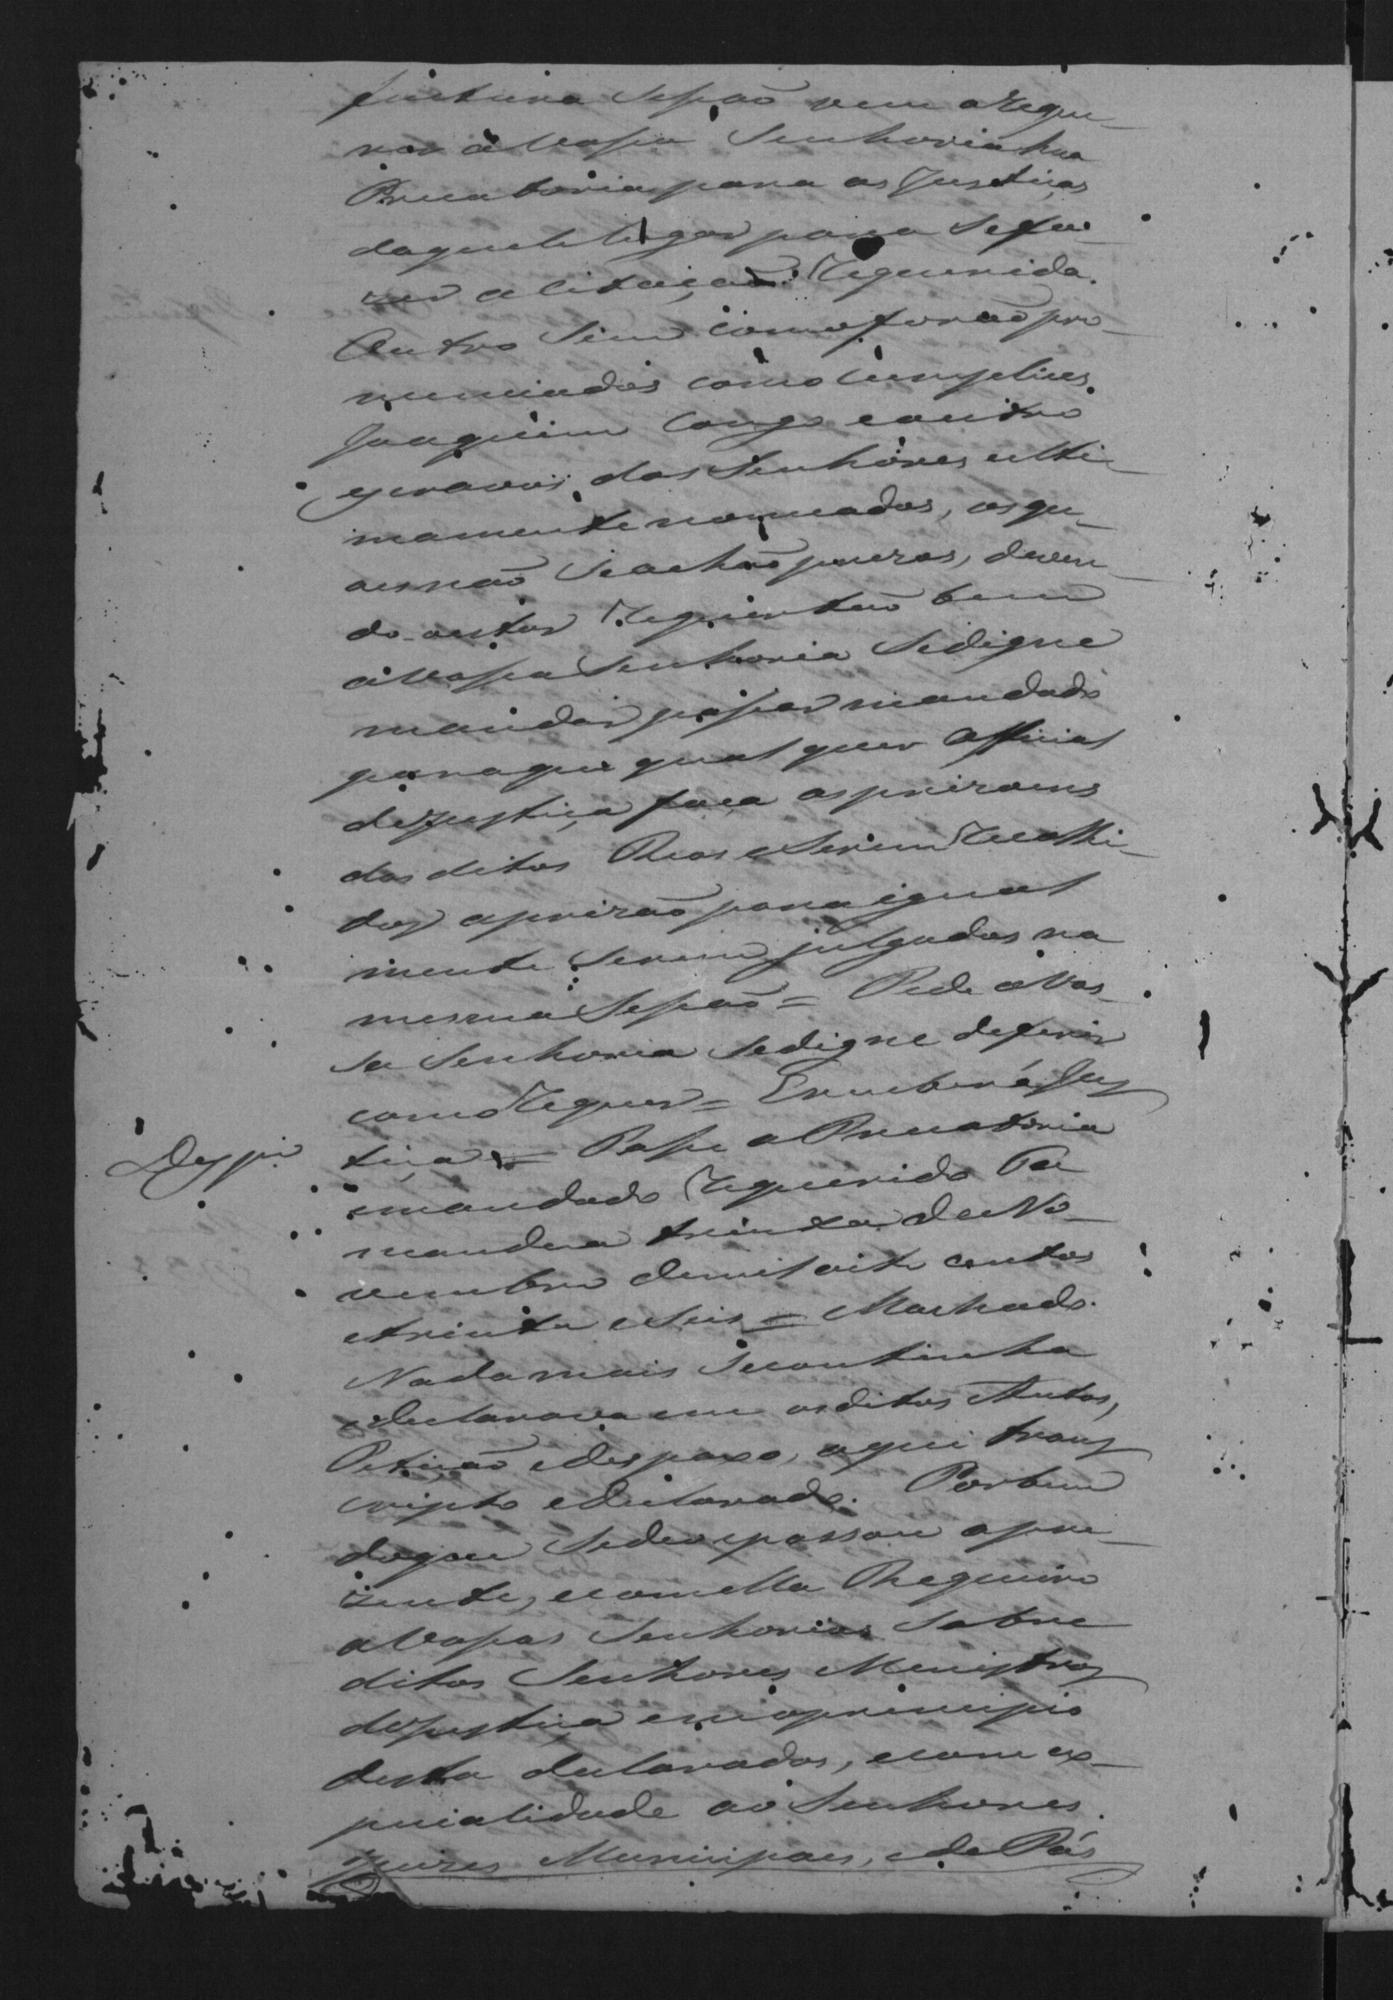 futura Sessão vem a reque-
rer à Vossa Senhoria hua
Precatoria para as Justiças
daquele lugar para se fa-
zer a citação requerida.
Outro Sim como forão pro-
nunciados como cumplices
Joaquim Congo e outro
escravos dos Senhores ulti-
mamente nomeados, os qu-
aes não se achão prezos, deven-
do o autor requer tão bem
a Vossa Senhoria Se digne
mandar passar mandado
para que qual quer Official
de Justiça faça as prizoens
dos ditos Reos e Serem recolhi-
dos a prizão para igual
mente serem julgados na
mesma Sessão = Pede a Vos-
sa Senhoria se digne deferir
como requer = E receberá Jus
tiça = Passe a Precatoria
Despxo
e mandado requerido Ta
mandua trinta de No-
vembro de mil oito centos
e trinta e Seis = Machado.
Nada mais se continha
e declarava em os ditos Autos,
Petição e despaxo, aqui trans
cripto e declarado. Por bem
do que Se deo e passou a pre-
zente, e com ella Requeiro
a Vossas Senhorias Sobre
ditos Senhores Menistros
de Justiça em o principio
desta declarados, e com ex-
pecialidade ao Senhores
Juizes Municipaes, e de Pás